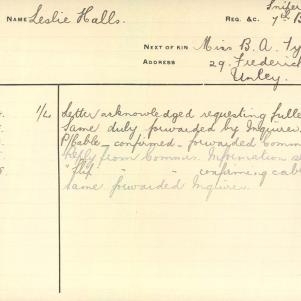 Snifer
NAME Leslie Halls. REG. &C. 7th B
NEXT OF KIN Miss B. A. Ty
ADDRESS 29. Frederick
Unley.
1/4 Letter acknowledged requesting fulle
Same duly forwarded by Inquirer
P/Cable - confirmed - forwarded Comm
Reply from Commrs. Information
" " " confirming cabl
Same forwarded Inquirer.